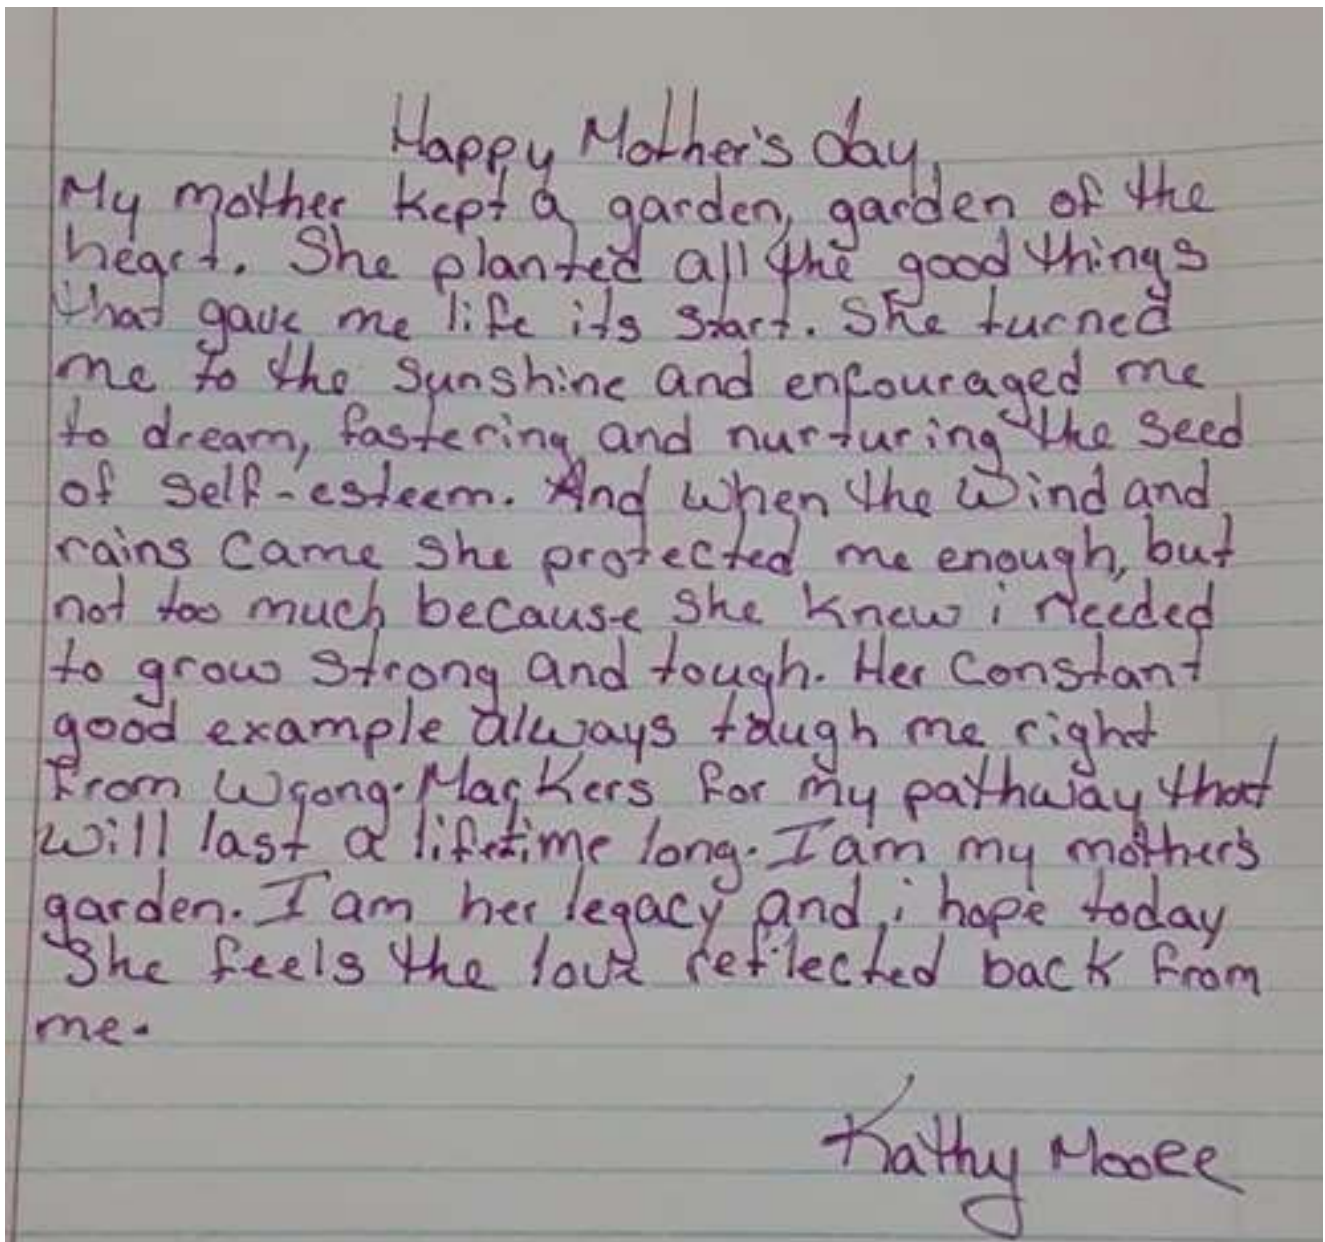 Happy Mother's day,
My mother kept a garden, garden of the
heart. She planted all the good things
that gave me life its start. She turned
me to the sunshine and encouraged me
to dream, fastering and nurturing the seed
of self-esteem. And when the wind and
rains came she protected me enough, but
not too much because she knew i needed
to grow strong and tough. Her constant
good example always taugh me right
from wrong. Markers for my pathway that
will last a lifetime long. I am my mother's
garden. I am her legacy and i hope today
She feels the love reflected back from
me.
Kathy Moore